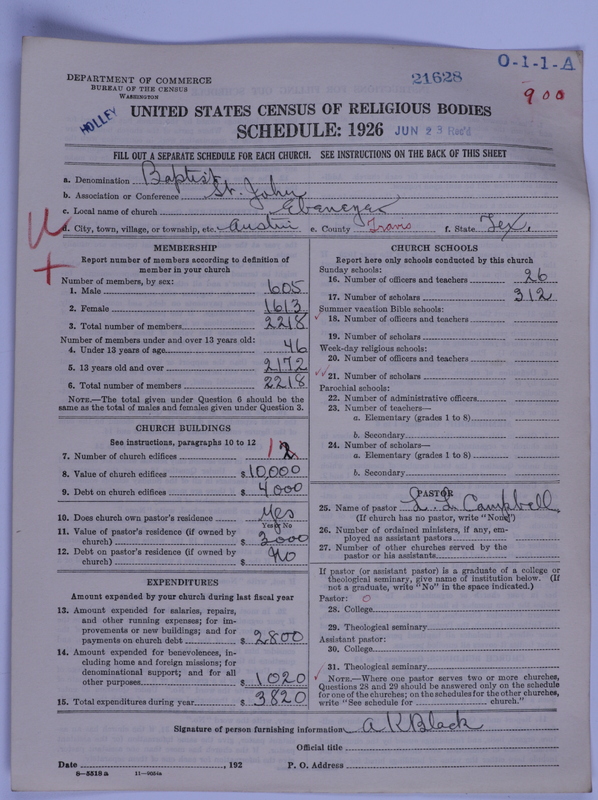 O-1-1-A
21628
900
DEPARTMENT OF COMMERCE
BUREAU OF THE CENSUS
WASHINGTON
HOLLEY
UNITED STATES CENSUS OF RELIGIOUS BODIES
SCHEDULE: 1926 JUN 23 Rec'd
FILL OUT A SEPARATE SCHEDULE FOR EACH CHURCH. SEE INSTRUCTIONS ON THE BACK OF THIS SHEET
a. Denomination Baptist
b. Association or Conference St. John
c. Local name of church Ebenezer
d. City, town, village, or township, etc. Austin e. County Travis f. State Tex.
MEMBERSHIP
Report number of members according to definition of
member in your church
Number of members, by sex:
1. Male 605
2. Female 1613
3. Total number of members 2218
Number of members under and over 13 years old:
4. Under 13 years of age 46
5. 13 years old and over 2172
6. Total number of members 2218
NOTE.—The total given under Question 6 should be the
same as the total of males and females given under Question 3.
CHURCH BUILDINGS
See instructions, paragraphs 10 to 12
7. Number of church edifices 1 2
8. Value of church edifices $10,000
9. Debt on church edifices $4000
10. Does church own pastor's residence Yes
Yes or No
11. Value of pastor's residence (if owned by
church) $2000
12. Debt on pastor's residence (if owned by
church) $No
EXPENDITURES
Amount expended by church during last fiscal year
13. Amount expended for salaries, repairs,
and other running expenses; for im-
provements or new buildings; and for
payments on church debt $2800
14. Amount expended for benevolences, in-
cluding home and foreign missions; for
denominational support; and for all
other purposes $1020
15. Total expenditures during year $3820
CHURCH SCHOOLS
Report here only schools conducted by this church
Sunday schools:
16. Number of officers and teachers 26
17. Number of scholars 312
Summer vacation Bible schools:
18. Number of officers and teachers
19. Number of scholars
Week-day religious schools:
20. Number of officers and teachers
21. Number of scholars
Parochial schools:
22. Number of administrative officers
23. Number of teachers—
a. Elementary (grades 1 to 8)
b. Secondary
24. Number of scholars—
a. Elementary (grades 1 to 8)
b. Secondary
PASTOR
25. Name of pastor L. L. Campbell
(If church has no pastor, write "None")
26. Number of ordained ministers, if any, em-
ployed as assistant pastors
27. Number of other churches served by the
pastor or his assistants
If pastor (or assistant pastor) is a graduate of a college or
theological seminary, give name of institution below. (If
not a graduate, write "No" in the space indicated.)
Pastor: 0
28. College
29. Theological seminary
Assistant pastor:
30. College
31. Theological seminary
NOTE.—Where one pastor serves two or more churches,
Questions 28 and 29 should be answered only on the schedule
for one of the churches; on the schedules for the other churches,
write "See schedule for church."
Signature of person furnishing information A K Black
Official title
Date , 192 P. O. Address
8—5518 a 11—9054a